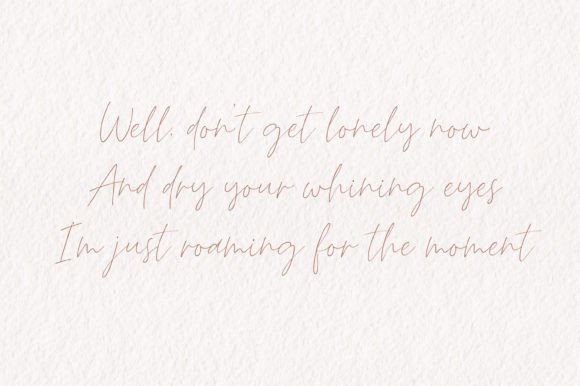 Well, don't get lonely now
And dry your whining eyes
I'm just roaming for the moment